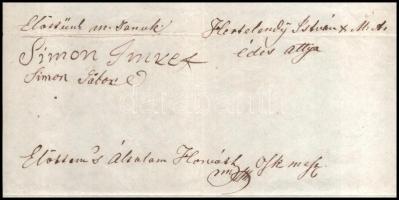 Előttünk m. tanuk
Hertelendÿ István x M. A.
édes attya
Simon Imre x
Simon Gábor
Előttem's Általam Horváth